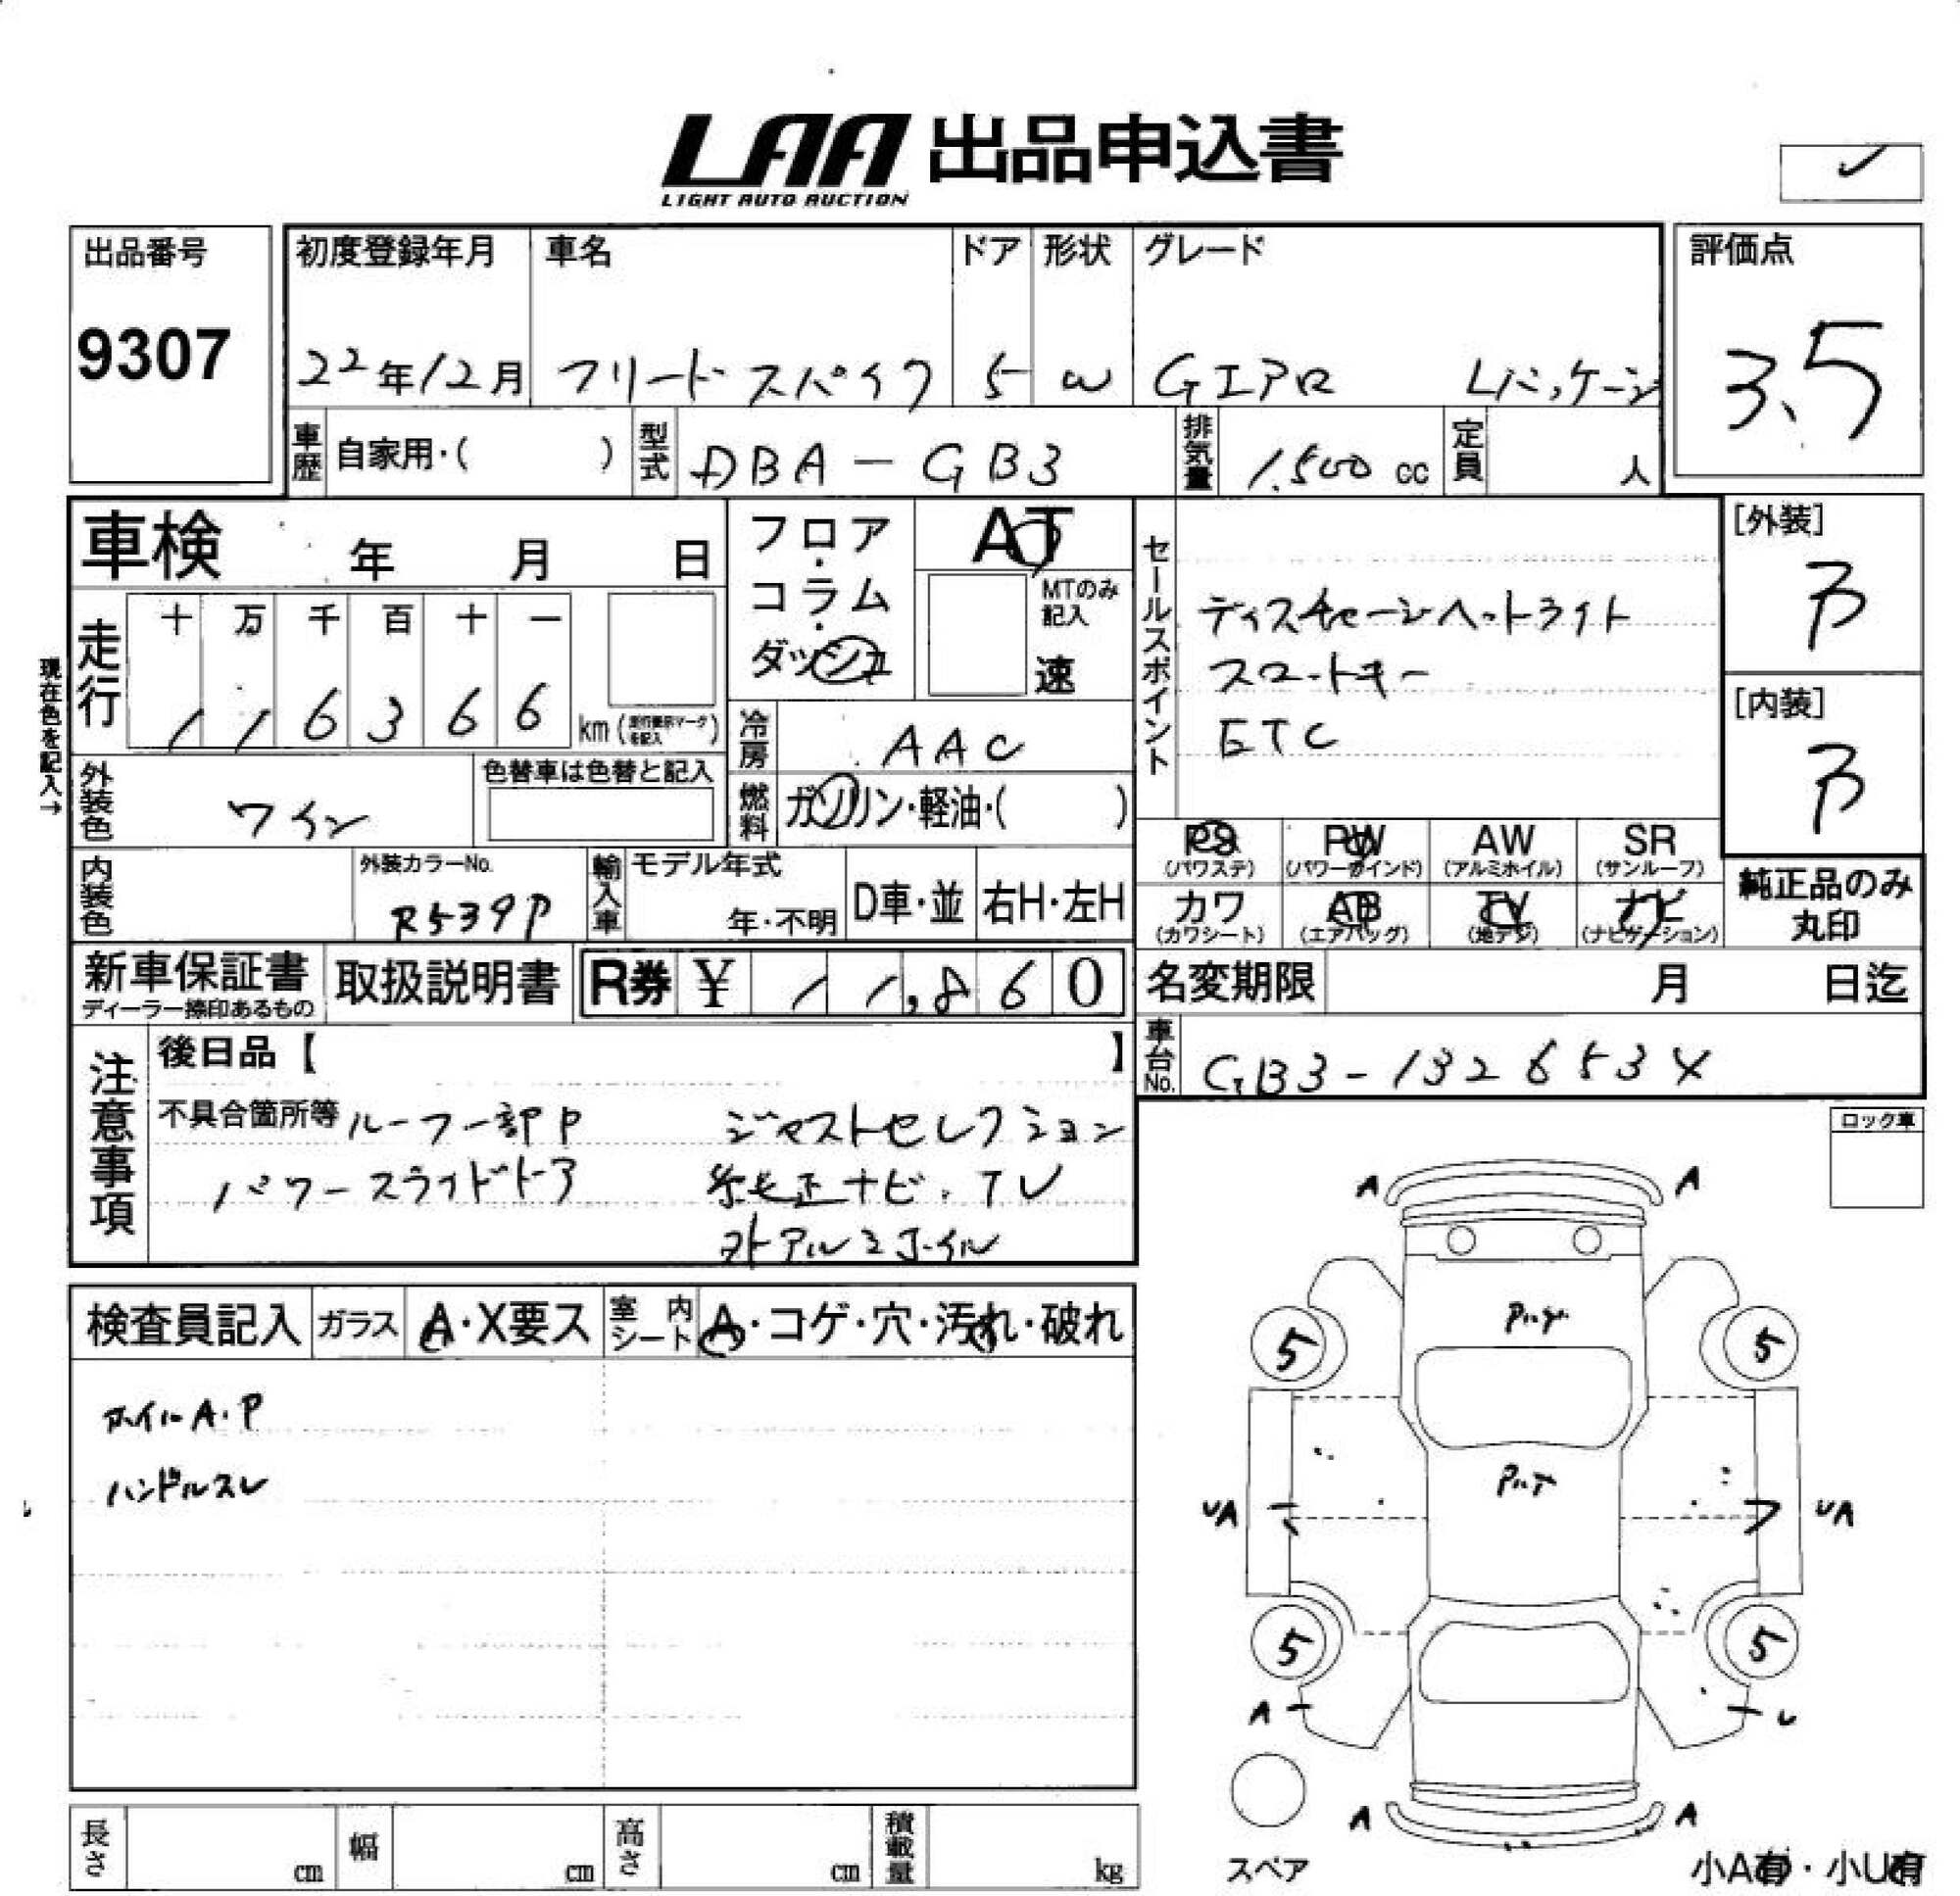 LAA 出品申込書
LIGHT AUTO AUCTION
出品番号
9307
初度登録年月 車名 ドア 形状 グレード
22年12月 フリードスパイク 5 W Gエアロ Lパッケージ
評価点
3.5
車歴 自家用・( ) 型式 DBA-GB3 排気量 1,500 cc 定員 人
車検 年 月 日
フロア・コラム・ダッシュ
AT
MTのみ記入
速
セールスポイント
ディスチャージヘットライト
スマートキー
ETC
[外装]
B
[内装]
B
現在色を記入→
走行 十 万 千 百 十 一
1 1 6 3 6 6 km (走行表示マークを記入)
冷房 AAC
外装色 ワイン
色替車は色替と記入
燃料 ガソリン・軽油・( )
PS PW AW SR
(パワステ) (パワーウインド) (アルミホイル) (サンルーフ)
カワ AB TV ナビ
(カワシート) (エアバッグ) (地デジ) (ナビゲーション)
純正品のみ
丸印
内装色 外装カラーNo. R539P
輸入車 モデル年式 年・不明 D車・並 右H・左H
新車保証書 取扱説明書 R券 ¥ 11,860
ディーラー捺印あるもの
名変期限 月 日迄
車台No. GB3-132653X
注意事項
後日品【 】
不具合箇所等 ルーフ一部P ジャストセレクション
パワースライドドア 純正ナビ・TV
外アルミホイル
ロック車
検査員記入 ガラス A・X要ス 室内シート A・コゲ・穴・汚れ・破れ
ホイルA.P
ハンドルスレ
A A
5 5
UA UA
5 5
A U
A A
スペア
小A有・小U有
長さ cm 幅 cm 高さ cm 積載量 kg